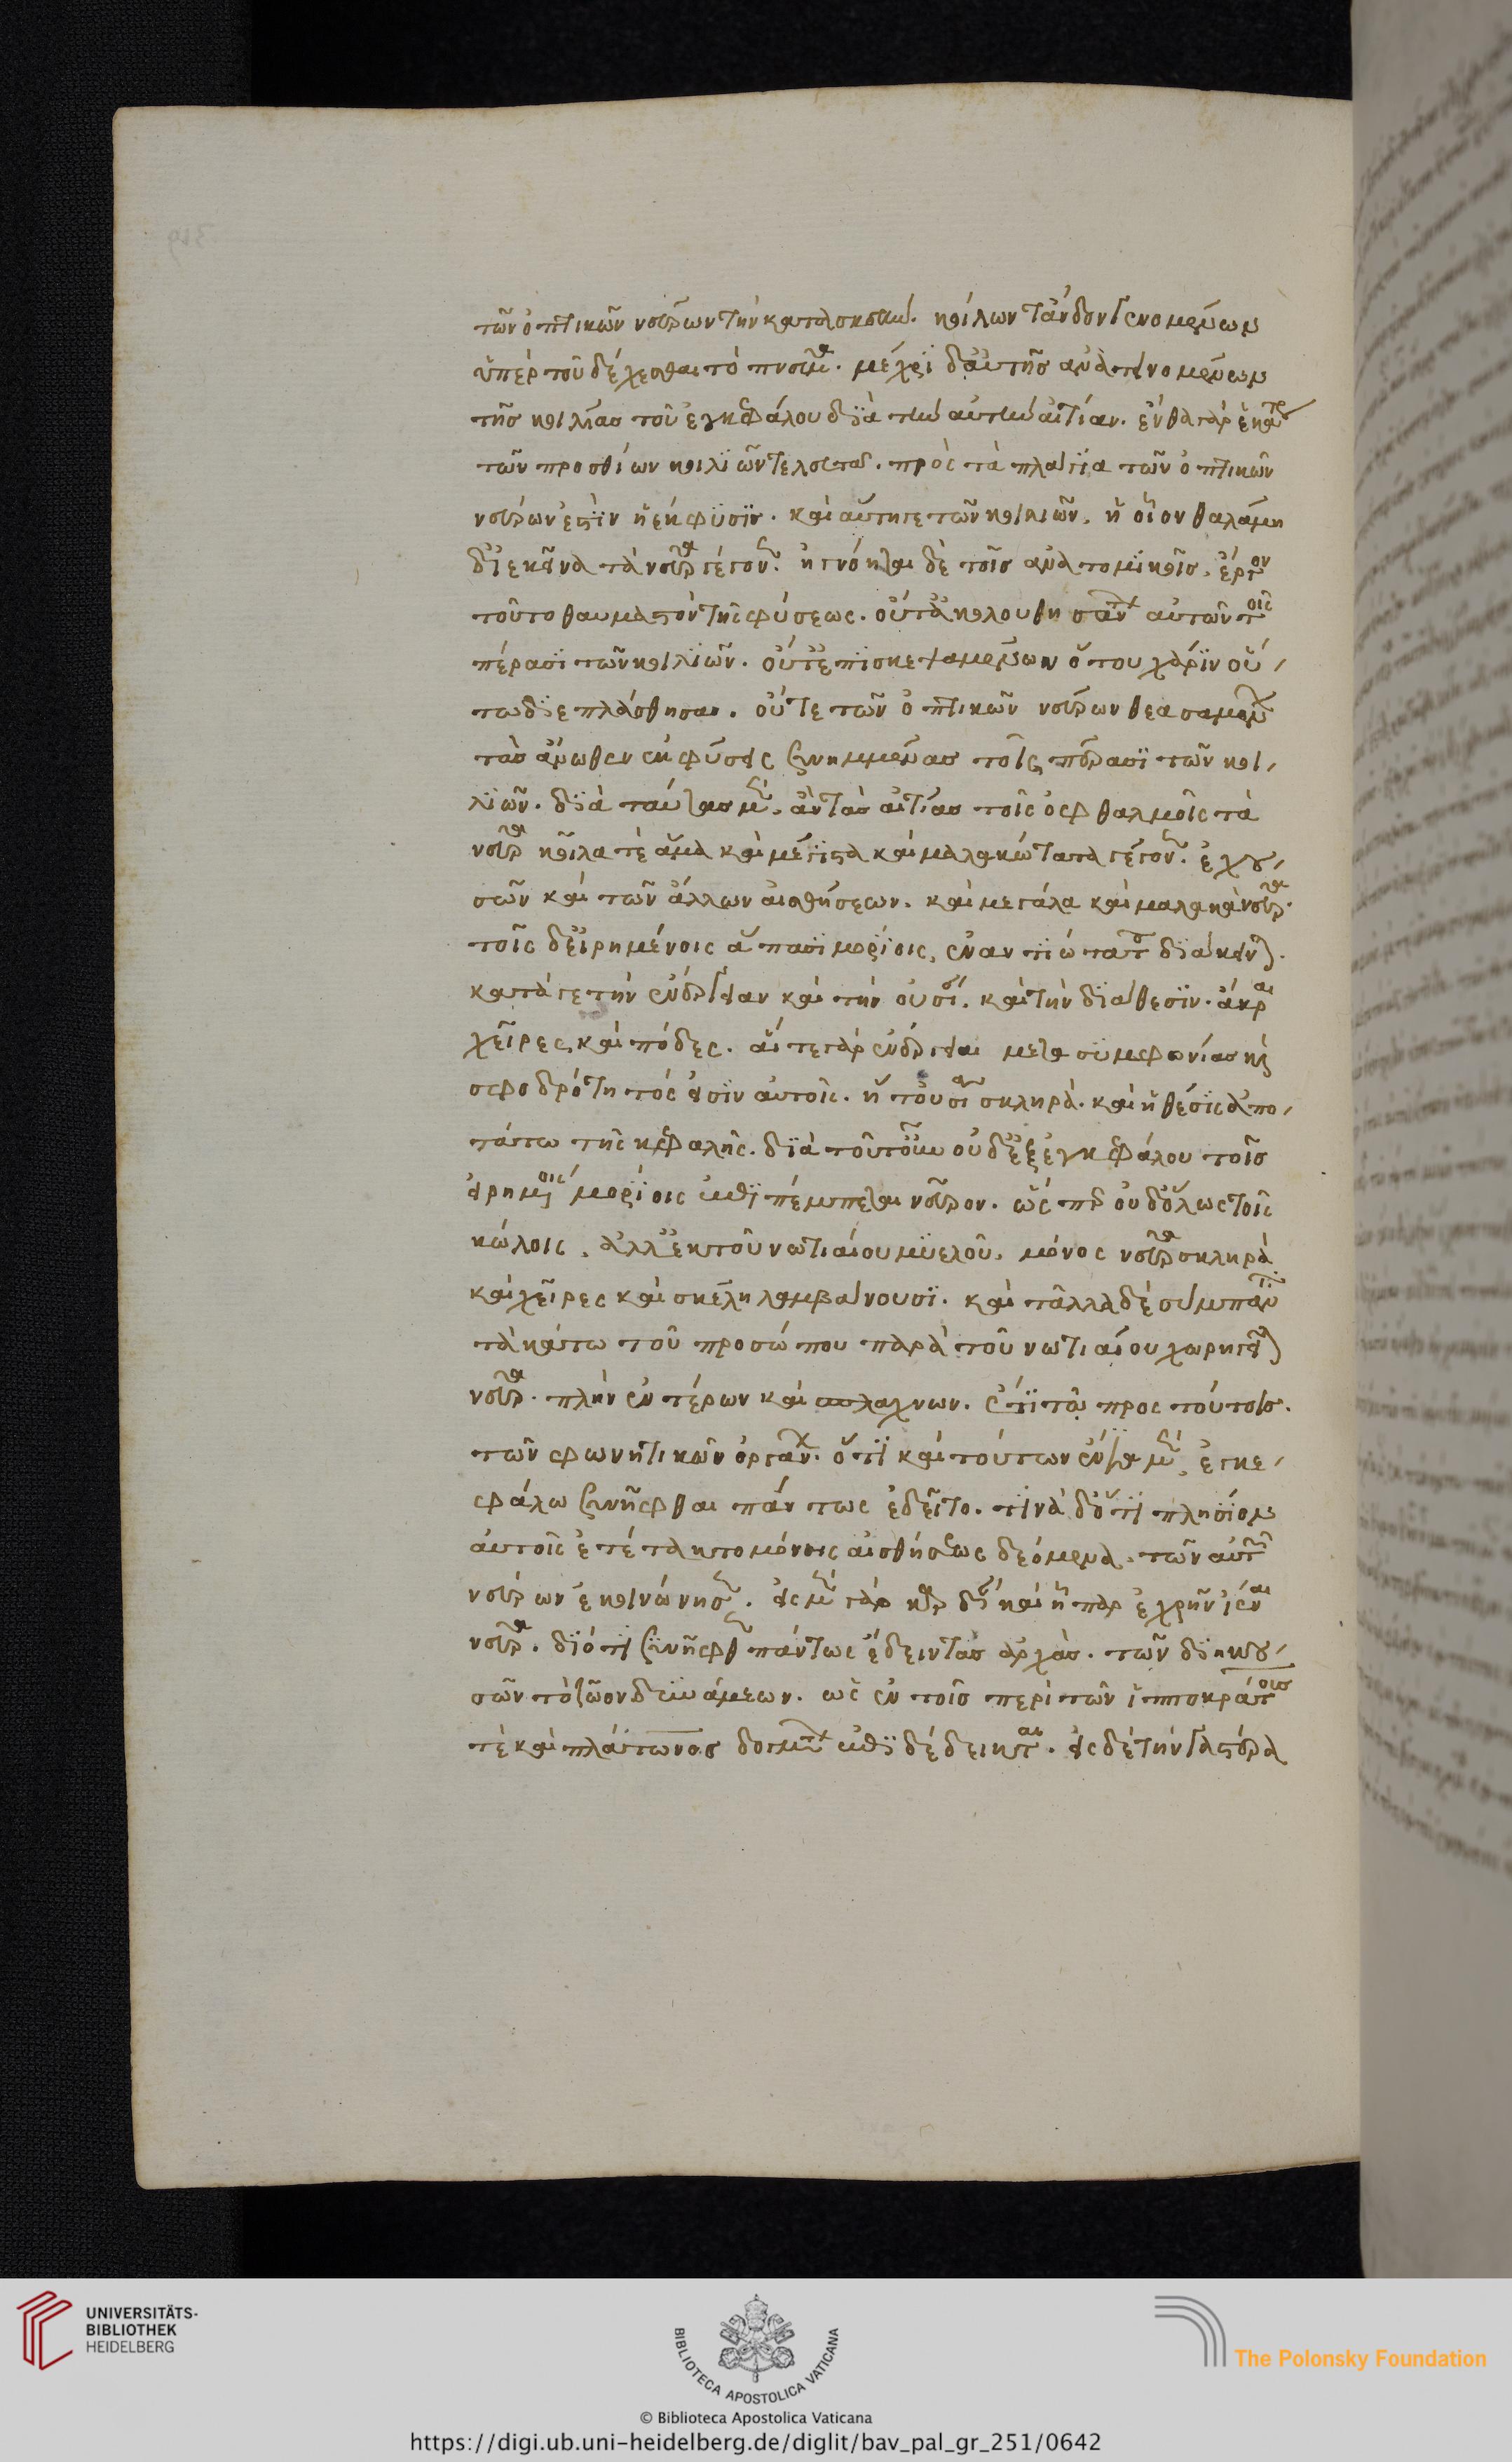 τῶν ὀπτικῶν νεύρων τὴν κατασκευήν. κοίλων τἄνδον γενομένων
ὑπὲρ τοῦ δέχεσθαι τὸ πνεῦμα. μέχρι δ' αὐτῆς ἀνατεινομένων
τῆς κοιλίας τοῦ ἐγκεφάλου διὰ τὴν αὐτὴν αἰτίαν. ἔνθα γὰρ ἑκατέρα
τῶν προσθίων κοιλιῶν τελευτᾷ. πρὸς τὰ πλάγια τῶν ὀπτικῶν
νεύρων ἐστὶν ἡ ἔκφυσις. καὶ αὕτη γε τῶν κοιλιῶν. ἡ οἷον θαλάμη
δι' ἐκεῖνα τὰ νεῦρα γέγονεν. ἠγνόηται δὲ τοῖς ἀνατομικοῖς. ἔργον
τοῦτο θαυμαστὸν τῆς φύσεως. οὔτ' ἀκολουθήσασιν αὐτῶν τοῖς
πέρασι τῶν κοιλιῶν. οὔτ' ἐπισκεψαμένων ὅτου χάριν οὕ-
τω διεπλάσθησαν. οὔτε τῶν ὀπτικῶν νεύρων θεασαμένων
τὰς ἄνωθεν ἐκφύσεις συνημμένας τοῖς πέρασι τῶν κοι-
λιῶν. διὰ ταύτας μὲν. ἂν τὰς αἰτίας τοῖς ὀφθαλμοῖς τὰ
νεῦρα κοῖλά τε ἅμα καὶ μέγιστα καὶ μαλακώτατα γέγονεν. ἐχου-
σῶν καὶ τῶν ἄλλων αἰσθήσεων. καὶ μεγάλα καὶ μαλακὰ νεῦρα.
τοῖς δ' εἰρημένοις ἅπασι μορίοις, ἐναντιώτατα διάκεινται.
κατά γε τὴν ἐνέργειαν καὶ τὴν οὐσίαν. καὶ τὴν διάθεσιν. ἄκραι
χεῖρες καὶ πόδες. αἵ τε γὰρ ἐνέργειαι μετὰ συμφωνίας καὶ
σφοδρότητός εἰσιν αὐτοῖς. ἥ τ' οὐσία σκληρά. καὶ ἡ θέσις ἀπο-
τάτω τῆς κεφαλῆς. διὰ τοῦτ' οὖν οὐδ' ἐξ ἐγκεφάλου τοῖς
εἰρημένοις μορίοις καθήπεμπεται νεῦρον. ὥσπερ οὐδ' ὅλως τοῖς
κώλοις. ἀλλ' ἐκ τοῦ νωτιαίου μυελοῦ. μόνος νεῦρα σκληρὰ
καὶ χεῖρες καὶ σκέλη λαμβάνουσι. καὶ τἄλλα δὲ σύμπαντα
τὰ κάτω τοῦ προσώπου παρὰ τοῦ νωτιαίου χωρηγεῖται
νεῦρα. πλὴν ἐντέρων καὶ σπλάχνων. ἔτι τῶν πρὸς τούτοις.
τῶν φωνητικῶν ὀργάνων. ὅτι καὶ τούτων ἔνια μὲν, ἐγκε-
φάλω συνῆφθαι πάντως ἐδεῖτο. τινὰ δ' ὅτι πλησίον
αὐτοῖς ἐτέτακτο μόνοις αἰσθήσεως δεόμενα. τῶν αὐτῶν
νεύρων ἐκοινώνησεν. εἰς μὲν γὰρ καρδίαν καὶ ἧπαρ ἐχρῆν ἰέναι
νεῦρα. διότι συνῆφθαι πάντως ἔδει τὰς ἀρχὰς. τῶν διοικου-
σῶν τὸ ζῶον δυνάμεων. ὡς ἐν τοῖς περὶ τῶν ἱπποκράτους
τε καὶ πλάτωνος δογμάτων ἐπιδέδεικται. εἰς δὲ τὴν γαστέρα
UNIVERSITÄTS-
BIBLIOTHEK
HEIDELBERG
BIBLIOTECA APOSTOLICA VATICANA
The Polonsky Foundation
© Biblioteca Apostolica Vaticana
https://digi.ub.uni-heidelberg.de/diglit/bav_pal_gr_251/0642